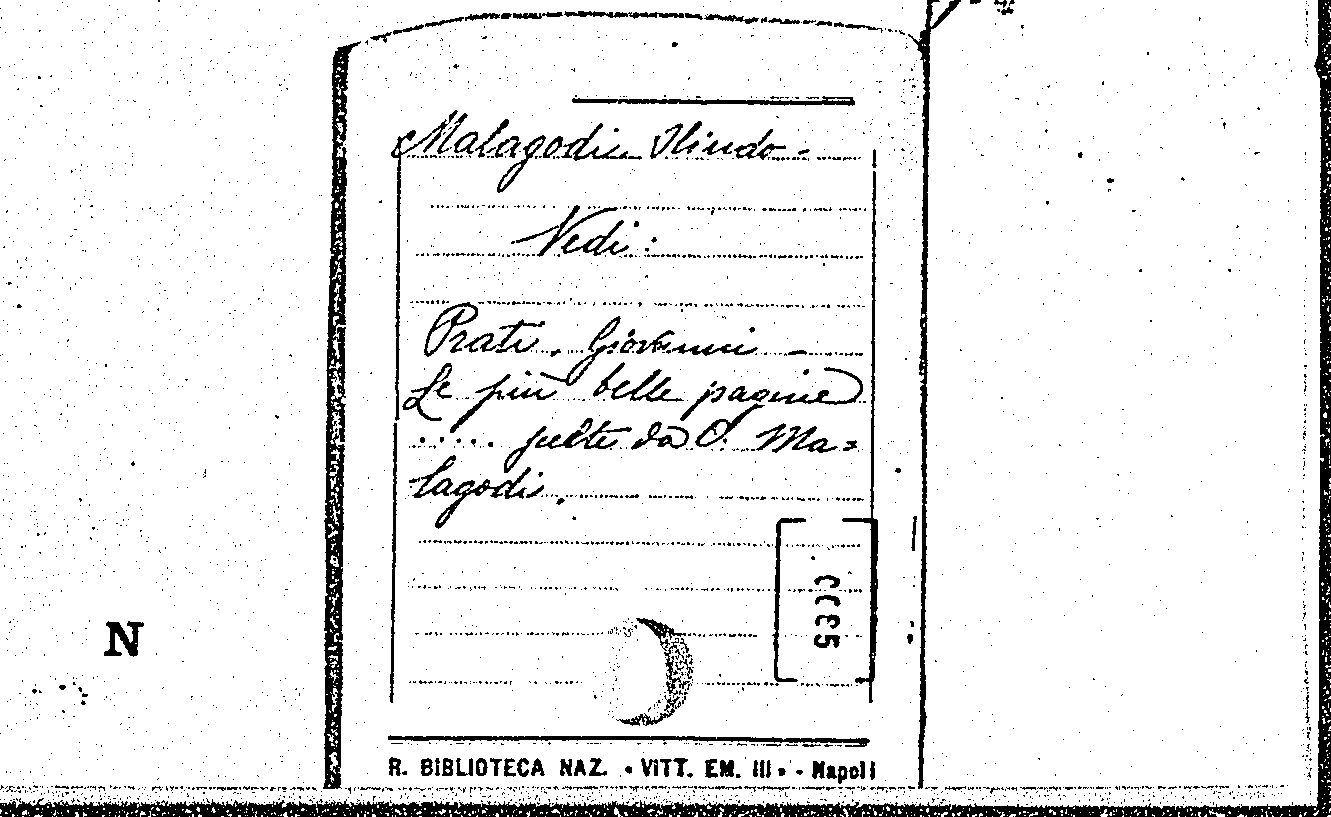 Malagodi Olindo -
Vedi:
Prati, Giovanni -
Le più belle pagine
..... scelte da O. Ma=
lagodi.
R. BIBLIOTECA NAZ. «VITT. EM. III» - Napoli
N